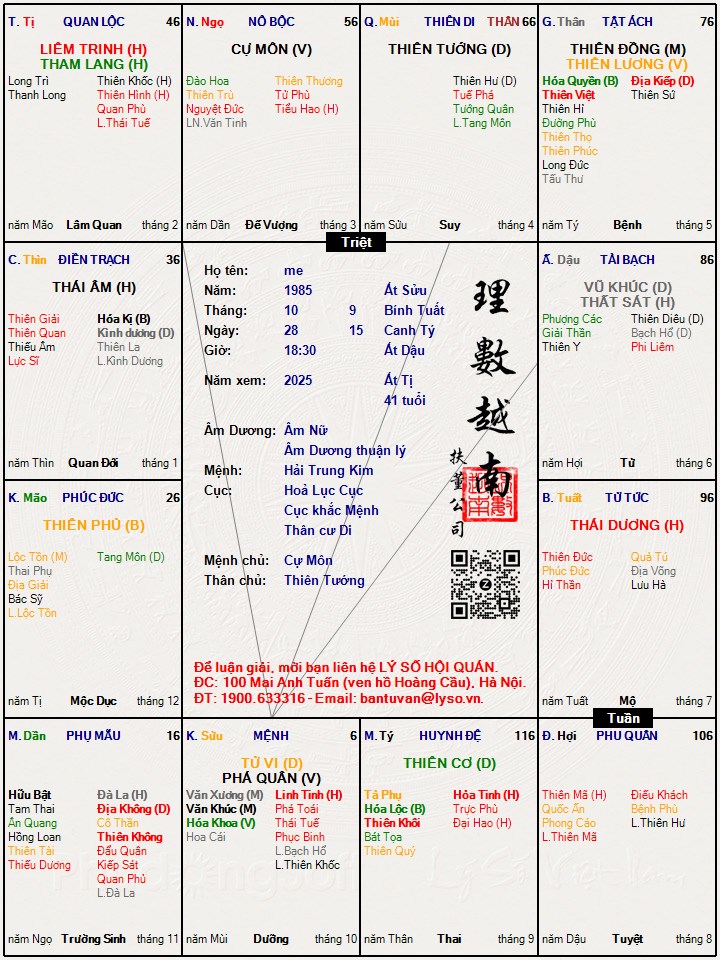 T. Tị QUAN LỘC 46
LIÊM TRINH (H)
THAM LANG (H)
Long Trì Thiên Khốc (H)
Thanh Long Thiên Hình (H)
Quan Phù
L.Thái Tuế
năm Mão Lâm Quan tháng 2
N. Ngọ NÔ BỘC 56
CỰ MÔN (V)
Đào Hoa Thiên Thương
Thiên Trù Tử Phù
Nguyệt Đức Tiểu Hao (H)
LN.Văn Tinh
năm Dần Đế Vượng tháng 3
Q. Mùi THIÊN DI THÂN 66
THIÊN TƯỚNG (D)
Thiên Hư (D)
Tuế Phá
Tướng Quân
L.Tang Môn
năm Sửu Suy tháng 4
G. Thân TẬT ÁCH 76
THIÊN ĐỒNG (M)
THIÊN LƯƠNG (V)
Hóa Quyền (B) Địa Kiếp (D)
Thiên Việt Thiên Sứ
Thiên Hỉ
Đường Phù
Thiên Thọ
Thiên Phúc
Long Đức
Tấu Thư
năm Tý Bệnh tháng 5
Triệt
C. Thìn ĐIỀN TRẠCH 36
THÁI ÂM (H)
Thiên Giải Hóa Kị (B)
Thiên Quan Kình dương (D)
Thiếu Âm Thiên La
Lực Sĩ L.Kình Dương
năm Thìn Quan Đới tháng 1
Họ tên: me
Năm: 1985 Ất Sửu
Tháng: 10 9 Bính Tuất
Ngày: 28 15 Canh Tý
Giờ: 18:30 Ất Dậu
Năm xem: 2025 Ất Tị
41 tuổi
Âm Dương: Âm Nữ
Âm Dương thuận lý
Mệnh: Hải Trung Kim
Cục: Hoả Lục Cục
Cục khắc Mệnh
Thân cư Di
Mệnh chủ: Cự Môn
Thân chủ: Thiên Tướng
理數越南
扶董公司
Để luận giải, mời bạn liên hệ LÝ SỐ HỘI QUÁN.
ĐC: 100 Mai Anh Tuấn (ven hồ Hoàng Cầu), Hà Nội.
ĐT: 1900.633316 - Email: bantuvan@lyso.vn.
Ấ. Dậu TÀI BẠCH 86
VŨ KHÚC (D)
THẤT SÁT (H)
Phượng Các Thiên Diêu (D)
Giải Thần Bạch Hổ (D)
Thiên Y Phi Liêm
năm Hợi Tử tháng 6
K. Mão PHÚC ĐỨC 26
THIÊN PHỦ (B)
Lộc Tồn (M) Tang Môn (D)
Thai Phụ
Địa Giải
Bác Sỹ
L.Lộc Tồn
năm Tị Mộc Dục tháng 12
B. Tuất TỬ TỨC 96
THÁI DƯƠNG (H)
Thiên Đức Quả Tú
Phúc Đức Địa Võng
Hỉ Thần Lưu Hà
năm Tuất Mộ tháng 7
Tuần
M. Dần PHỤ MẪU 16
Hữu Bật Đà La (H)
Tam Thai Địa Không (D)
Ân Quang Cô Thần
Hồng Loan Thiên Không
Thiên Tài Đẩu Quân
Thiếu Dương Kiếp Sát
Quan Phủ
L.Đà La
năm Ngọ Trường Sinh tháng 11
K. Sửu MỆNH 6
TỬ VI (D)
PHÁ QUÂN (V)
Văn Xương (M) Linh Tinh (H)
Văn Khúc (M) Phá Toái
Hóa Khoa (V) Thái Tuế
Hoa Cái Phục Binh
L.Bạch Hổ
L.Thiên Khốc
năm Mùi Dưỡng tháng 10
M. Tý HUYNH ĐỆ 116
THIÊN CƠ (D)
Tả Phụ Hỏa Tinh (H)
Hóa Lộc (B) Trực Phù
Thiên Khôi Đại Hao (H)
Bát Tọa
Thiên Quý
năm Thân Thai tháng 9
Đ. Hợi PHU QUÂN 106
Thiên Mã (H) Điếu Khách
Quốc Ấn Bệnh Phù
Phong Cáo L.Thiên Hư
L.Thiên Mã
năm Dậu Tuyệt tháng 8